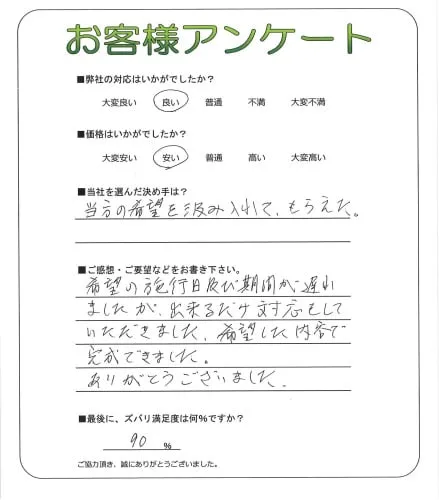 お客様アンケート
■弊社の対応はいかがでしたか?
大変良い 良い 普通 不満 大変不満
■価格はいかがでしたか?
大変安い 安い 普通 高い 大変高い
■当社を選んだ決め手は?
当方の希望を汲み入れて、もらえた。
■ご感想・ご要望などをお書き下さい。
希望の施行日及び期間が遅れ
ましたが、出来るだけ対応もして
いただきました、希望した内容で
完成できました。
ありがとうございました。
■最後に、ズバリ満足度は何%ですか?
90 %
ご協力頂き、誠にありがとうございました。